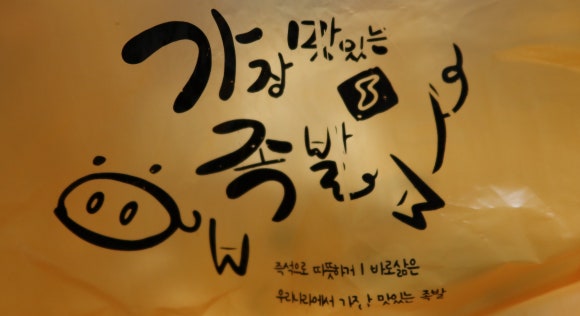 가장 맛있는
족발
즉석으로 따뜻하게 바로삶은
우리나라에서 가장 맛있는 족발